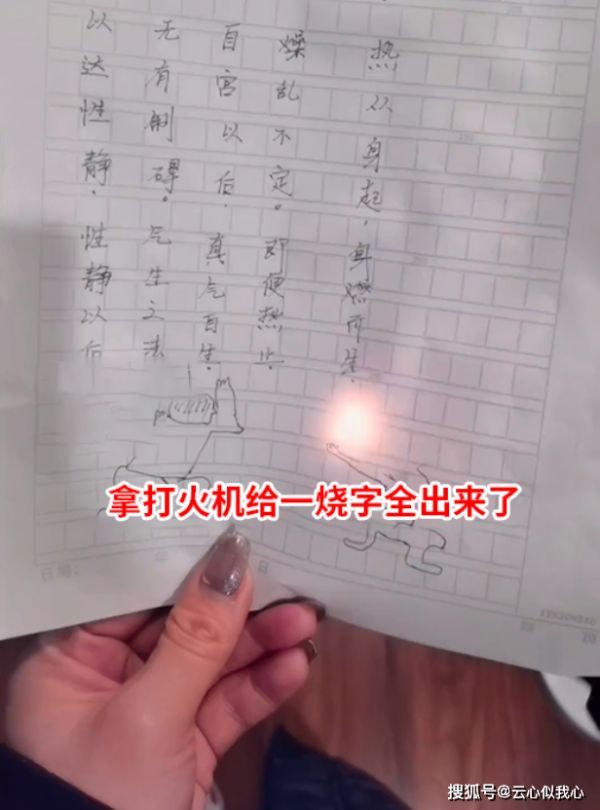 热从身起，身燃而生.
燥乱不定。即便热止.
自宫以后.真气自生.
无有制碍。气生之法
以达性静.性静以后
拿打火机给一烧字全出来了
日期:
日
搜狐号@云心似我心